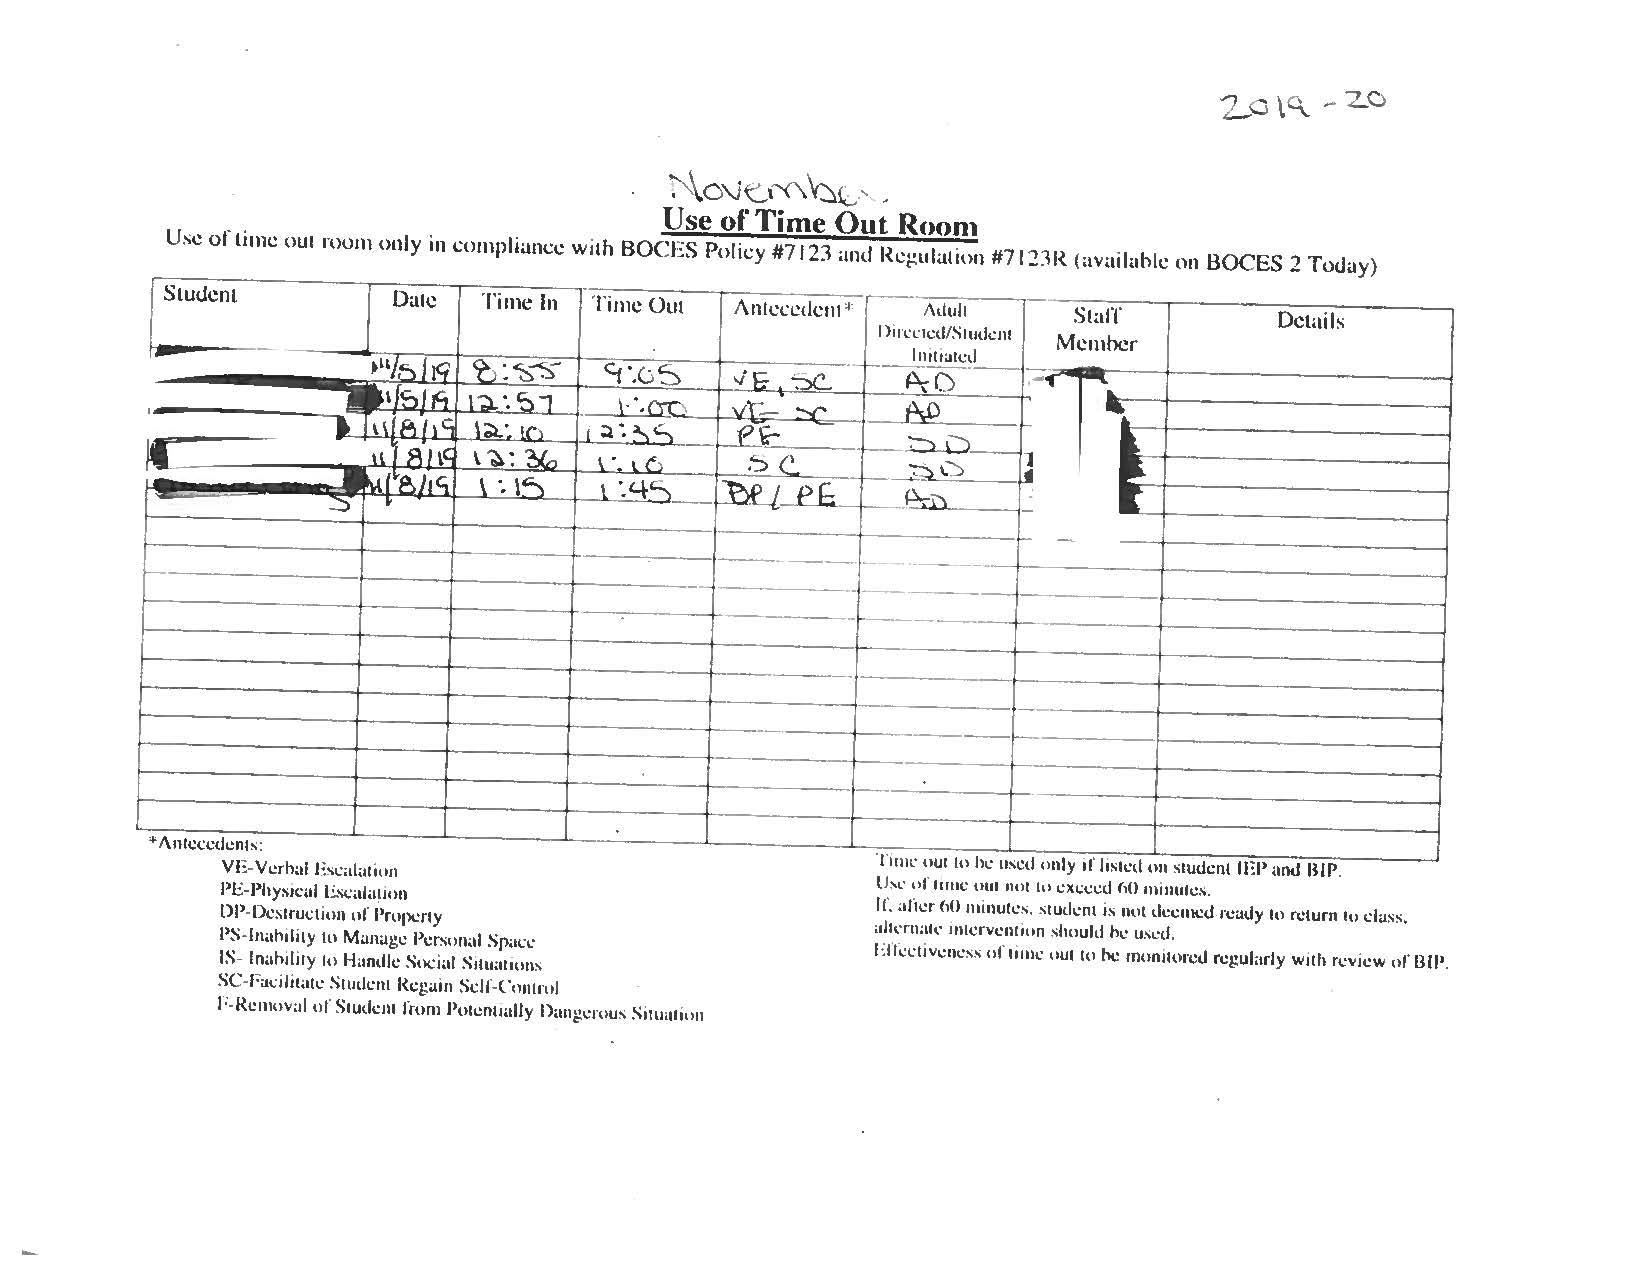 2019 - 20
November
Use of Time Out Room
Use of time out room only in compliance with BOCES Policy #7123 and Regulation #7123R (available on BOCES 2 Today)
Student Date Time In Time Out Antecedent* Adult Directed/Student Initiated Staff Member Details
11/5/19 8:55 9:05 VE, SC AD
11/5/19 12:57 1:00 VE SC AD
11/8/19 12:10 12:35 PE
11/8/19 12:36 1:10 SC
11/8/19 1:15 1:45 DP/ PE AD
*Antecedents:
VE-Verbal Escalation
PE-Physical Escalation
DP-Destruction of Property
PS-Inability to Manage Personal Space
IS- Inability to Handle Social Situations
SC-Facilitate Student Regain Self-Control
-Removal of Student from Potentially Dangerous Situation
Time out to be used only if listed on student IEP and BIP.
Use of time out not to exceed 60 minutes.
If, after 60 minutes, student is not deemed ready to return to class,
alternate intervention should be used.
Effectiveness of time out to be monitored regularly with review of BIP.